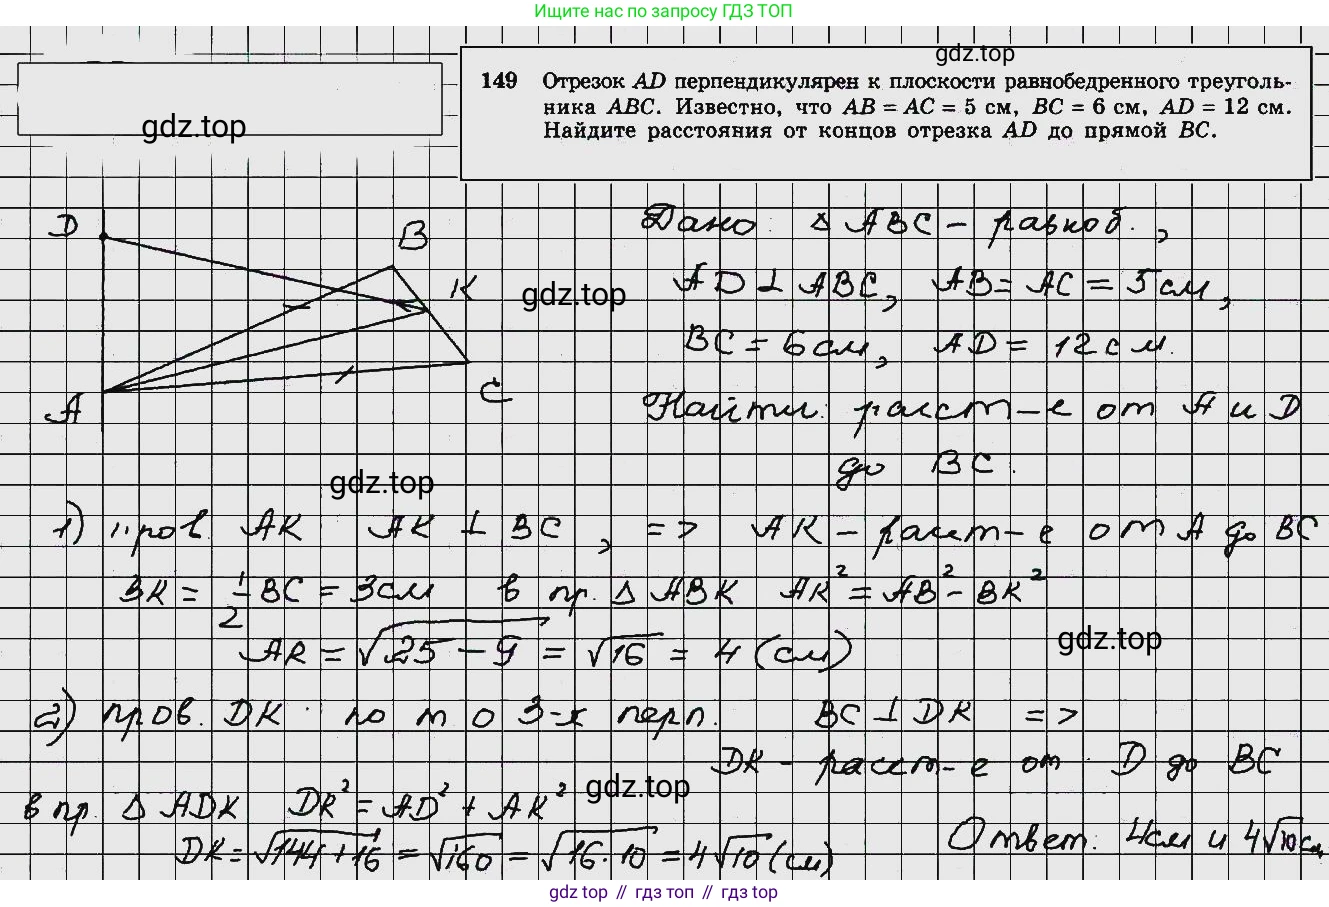 Ищите нас по запросу ГДЗ ТОП
gdz.top
149 Отрезок AD перпендикулярен к плоскости равнобедренного треуголь-
ника ABC. Известно, что AB = AC = 5 см, BC = 6 см, AD = 12 см.
Найдите расстояния от концов отрезка AD до прямой BC.
gdz.top
D
B
K
A
C
gdz.top
Дано: Δ ABC – равноб.,
AD ⊥ ABC, AB = AC = 5 см,
BC = 6 см, AD = 12 см.
Найти: расст–е от A и D
до BC.
gdz.top
1) пров. AK AK ⊥ BC, => AK – расст–е от A до BC
BK = 1/2 BC = 3 см в пр. Δ ABK AK² = AB² – BK²
AK = √25 – 9 = √16 = 4 (см)
gdz.top
2) пров. DK по т о 3-х перп. BC ⊥ DK =>
DK – расст–е от D до BC
в пр. Δ ADK DK² = AD² + AK²
gdz.top
DK = √144 + 16 = √160 = √16 · 10 = 4√10 (см)
Ответ: 4 см и 4√10 см
gdz top // гдз топ // гдз top